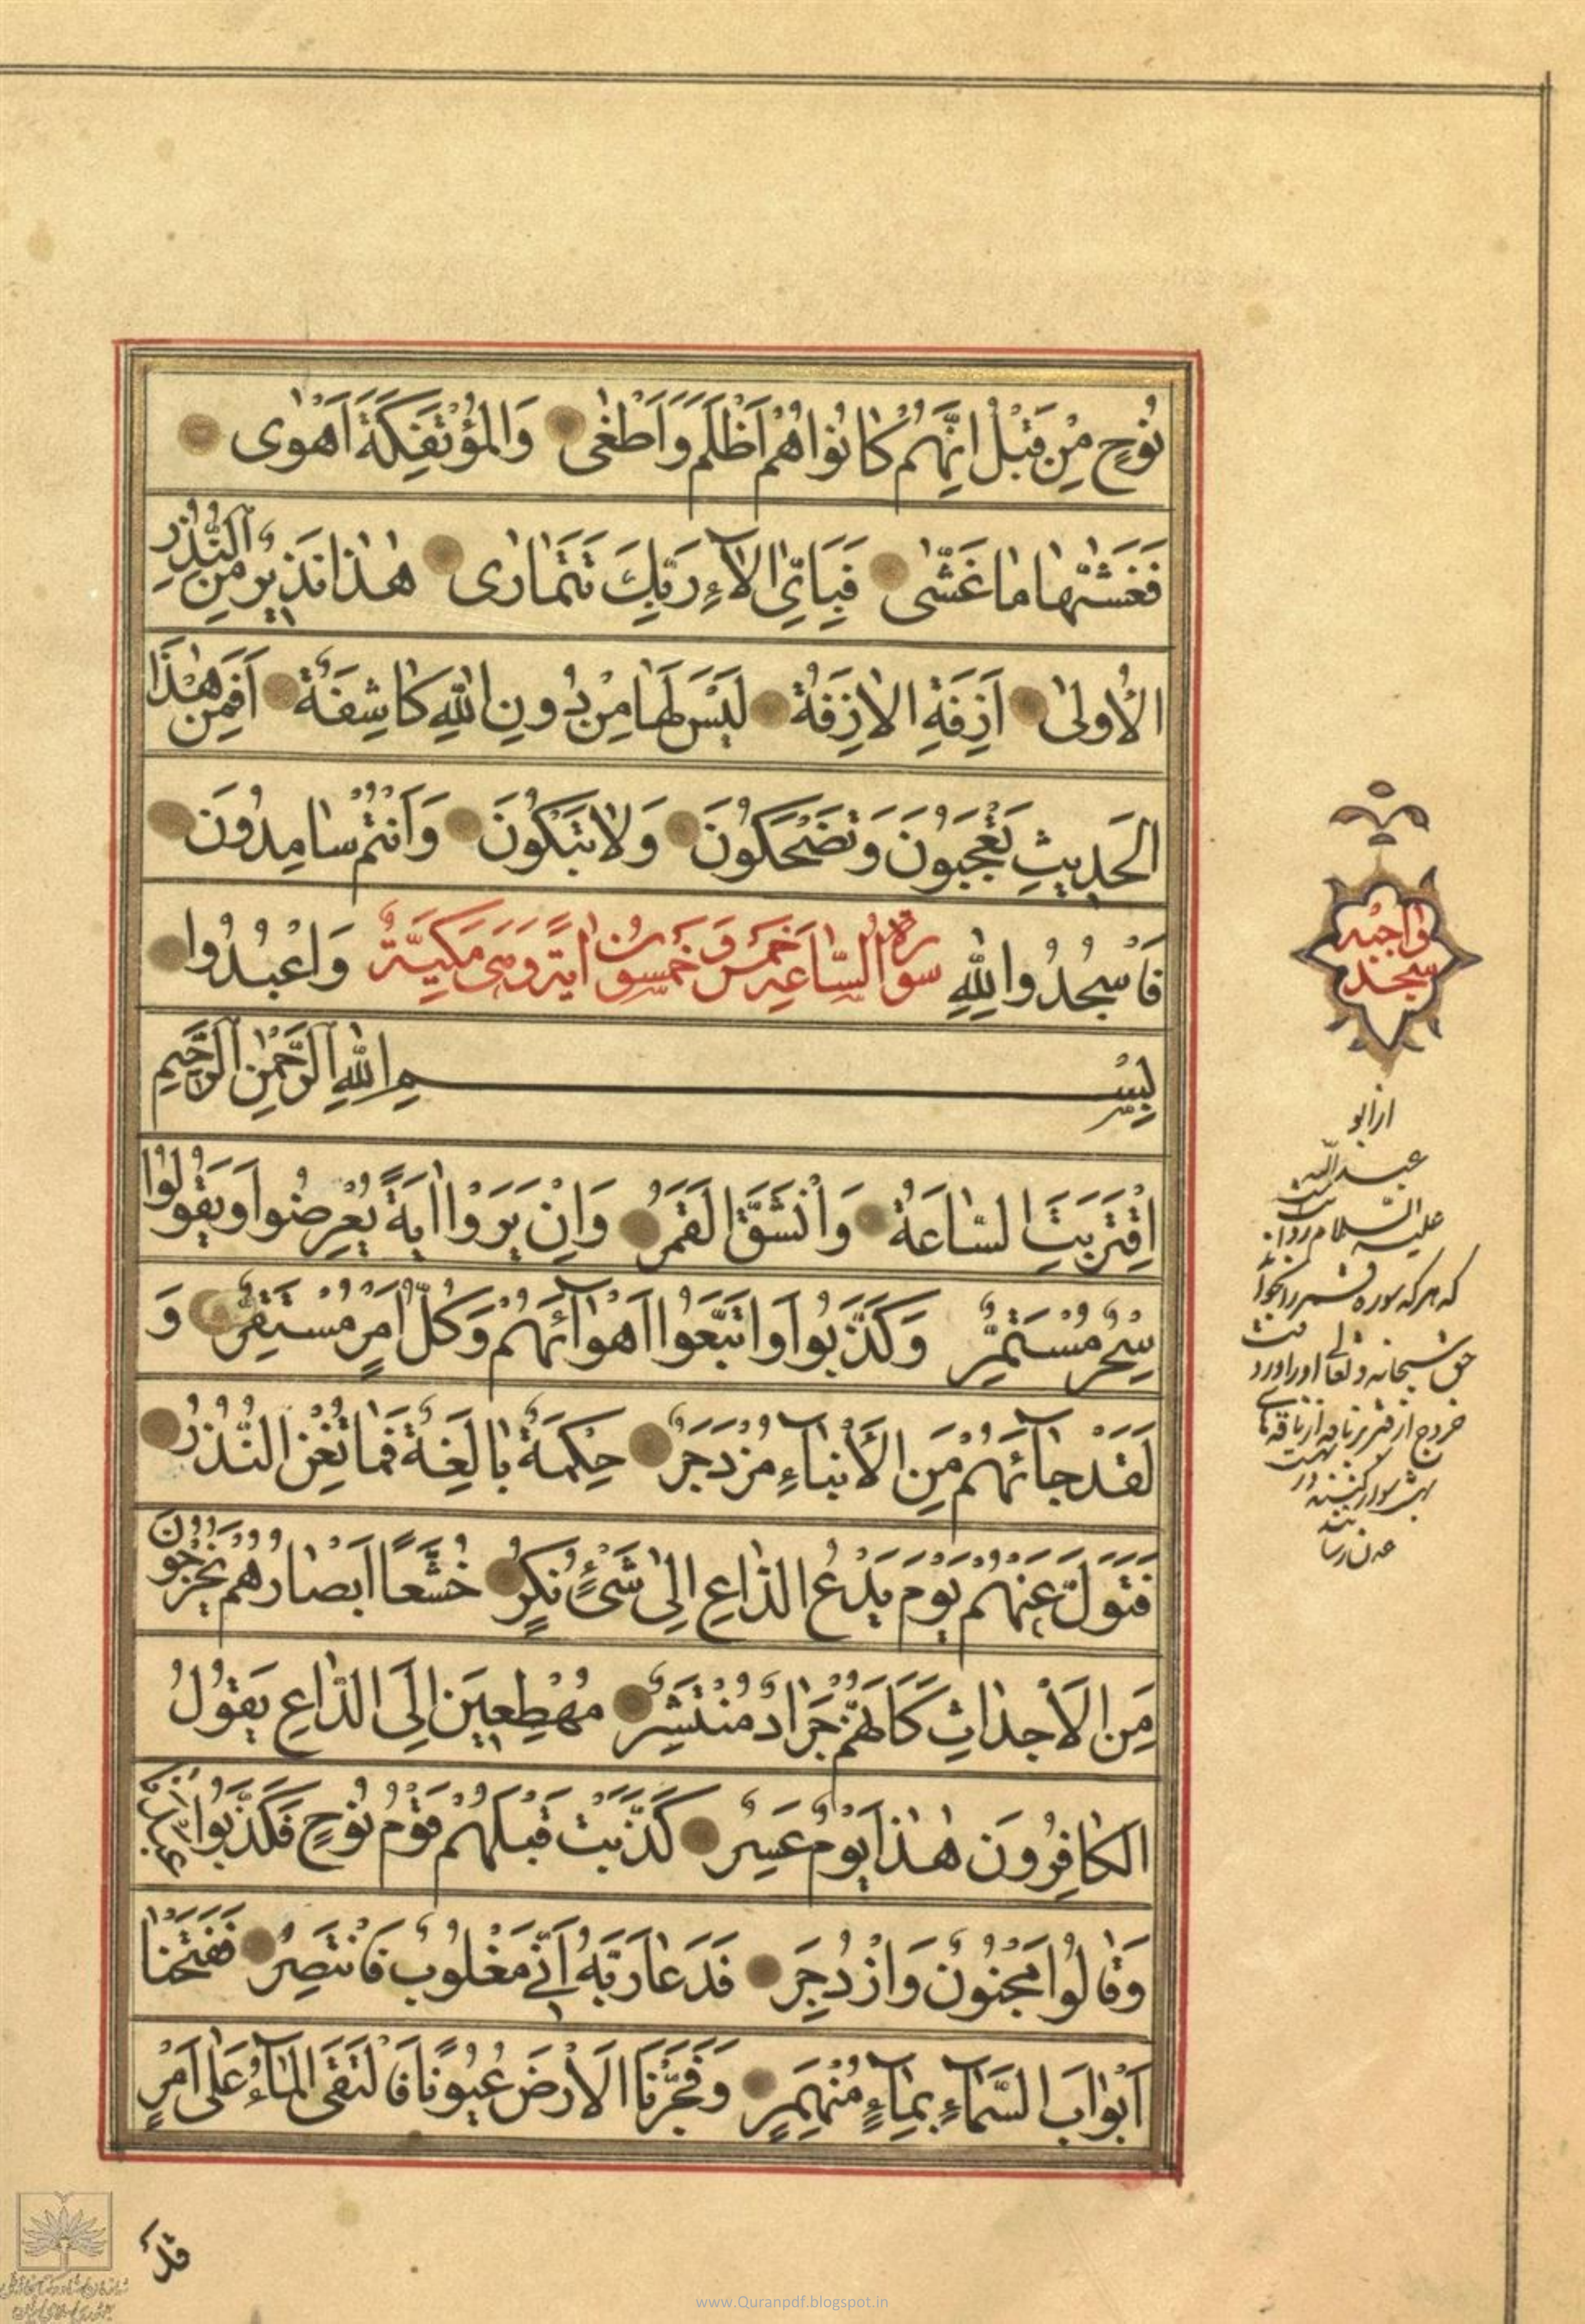 نُوحٍ مِنْ قَبْلُ اِنَّهُمْ كَانُوا هُمْ اَظْلَمَ وَاَطْغٰى وَالْمُؤْتَفِكَةَ اَهْوٰى
فَغَشّٰىهَا مَا غَشّٰى فَبِاَىِّ اٰلَآءِ رَبِّكَ تَتَمَارٰى هٰذَا نَذِيرٌ مِنَ النُّذُرِ
الْاُولٰى اَزِفَةِ الْاٰزِفَةُ لَيْسَ لَهَا مِنْ دُونِ اللّٰهِ كَاشِفَةٌ اَفَمِنْ هٰذَا
الْحَدِيثِ تَعْجَبُونَ وَتَضْحَكُونَ وَلَا تَبْكُونَ وَاَنْتُمْ سَامِدُونَ
فَاسْجُدُوا لِلّٰهِ سورة الساعه خمس و خمسون اية وهى مكيّة وَاعْبُدُوا
بِسْمِ اللّٰهِ الرَّحْمٰنِ الرَّحِيمِ
اِقْتَرَبَتِ السَّاعَةُ وَانْشَقَّ الْقَمَرُ وَاِنْ يَرَوْا اٰيَةً يُعْرِضُوا وَيَقُولُوا
سِحْرٌ مُسْتَمِرٌّ وَكَذَّبُوا وَاتَّبَعُوا اَهْوَآئَهُمْ وَكُلُّ اَمْرٍ مُسْتَقِرٌّ وَ
لَقَدْ جَآئَهُمْ مِنَ الْاَنْبَآءِ مُزْدَجَرٌ حِكْمَةٌ بَالِغَةٌ فَمَا تُغْنِ النُّذُرُ
فَتَوَلَّ عَنْهُمْ يَوْمَ يَدْعُ الدَّاعِ اِلٰى شَىْءٍ نُكُرٍ خُشَّعًا اَبْصَارُهُمْ يَخْرُجُونَ
مِنَ الْاَجْدَاثِ كَاَنَّهُمْ جَرَادٌ مُنْتَشِرٌ مُهْطِعِينَ اِلَى الدَّاعِ يَقُولُ
الْكَافِرُونَ هٰذَا يَوْمٌ عَسِرٌ كَذَّبَتْ قَبْلَهُمْ قَوْمُ نُوحٍ فَكَذَّبُوا عَبْدَنَا
وَقَالُوا مَجْنُونٌ وَازْدُجِرَ فَدَعَا رَبَّهُ اَنِّى مَغْلُوبٌ فَانْتَصِرْ فَفَتَحْنَا
اَبْوَابَ السَّمَآءِ بِمَآءٍ مُنْهَمِرٍ وَفَجَّرْنَا الْاَرْضَ عُيُونًا فَالْتَقَى الْمَآءُ عَلٰى اَمْرٍ
قَدْ
واجبه
سجده
از ابو
عبد الله
عليه السلام
كه هر كه سوره قمر را بخواند
حق سبحانه و تعالى او را
خروج از قبر بر ناقه از ناقه‌هاى
بهشت سوار
www.Quranpdf.blogspot.in